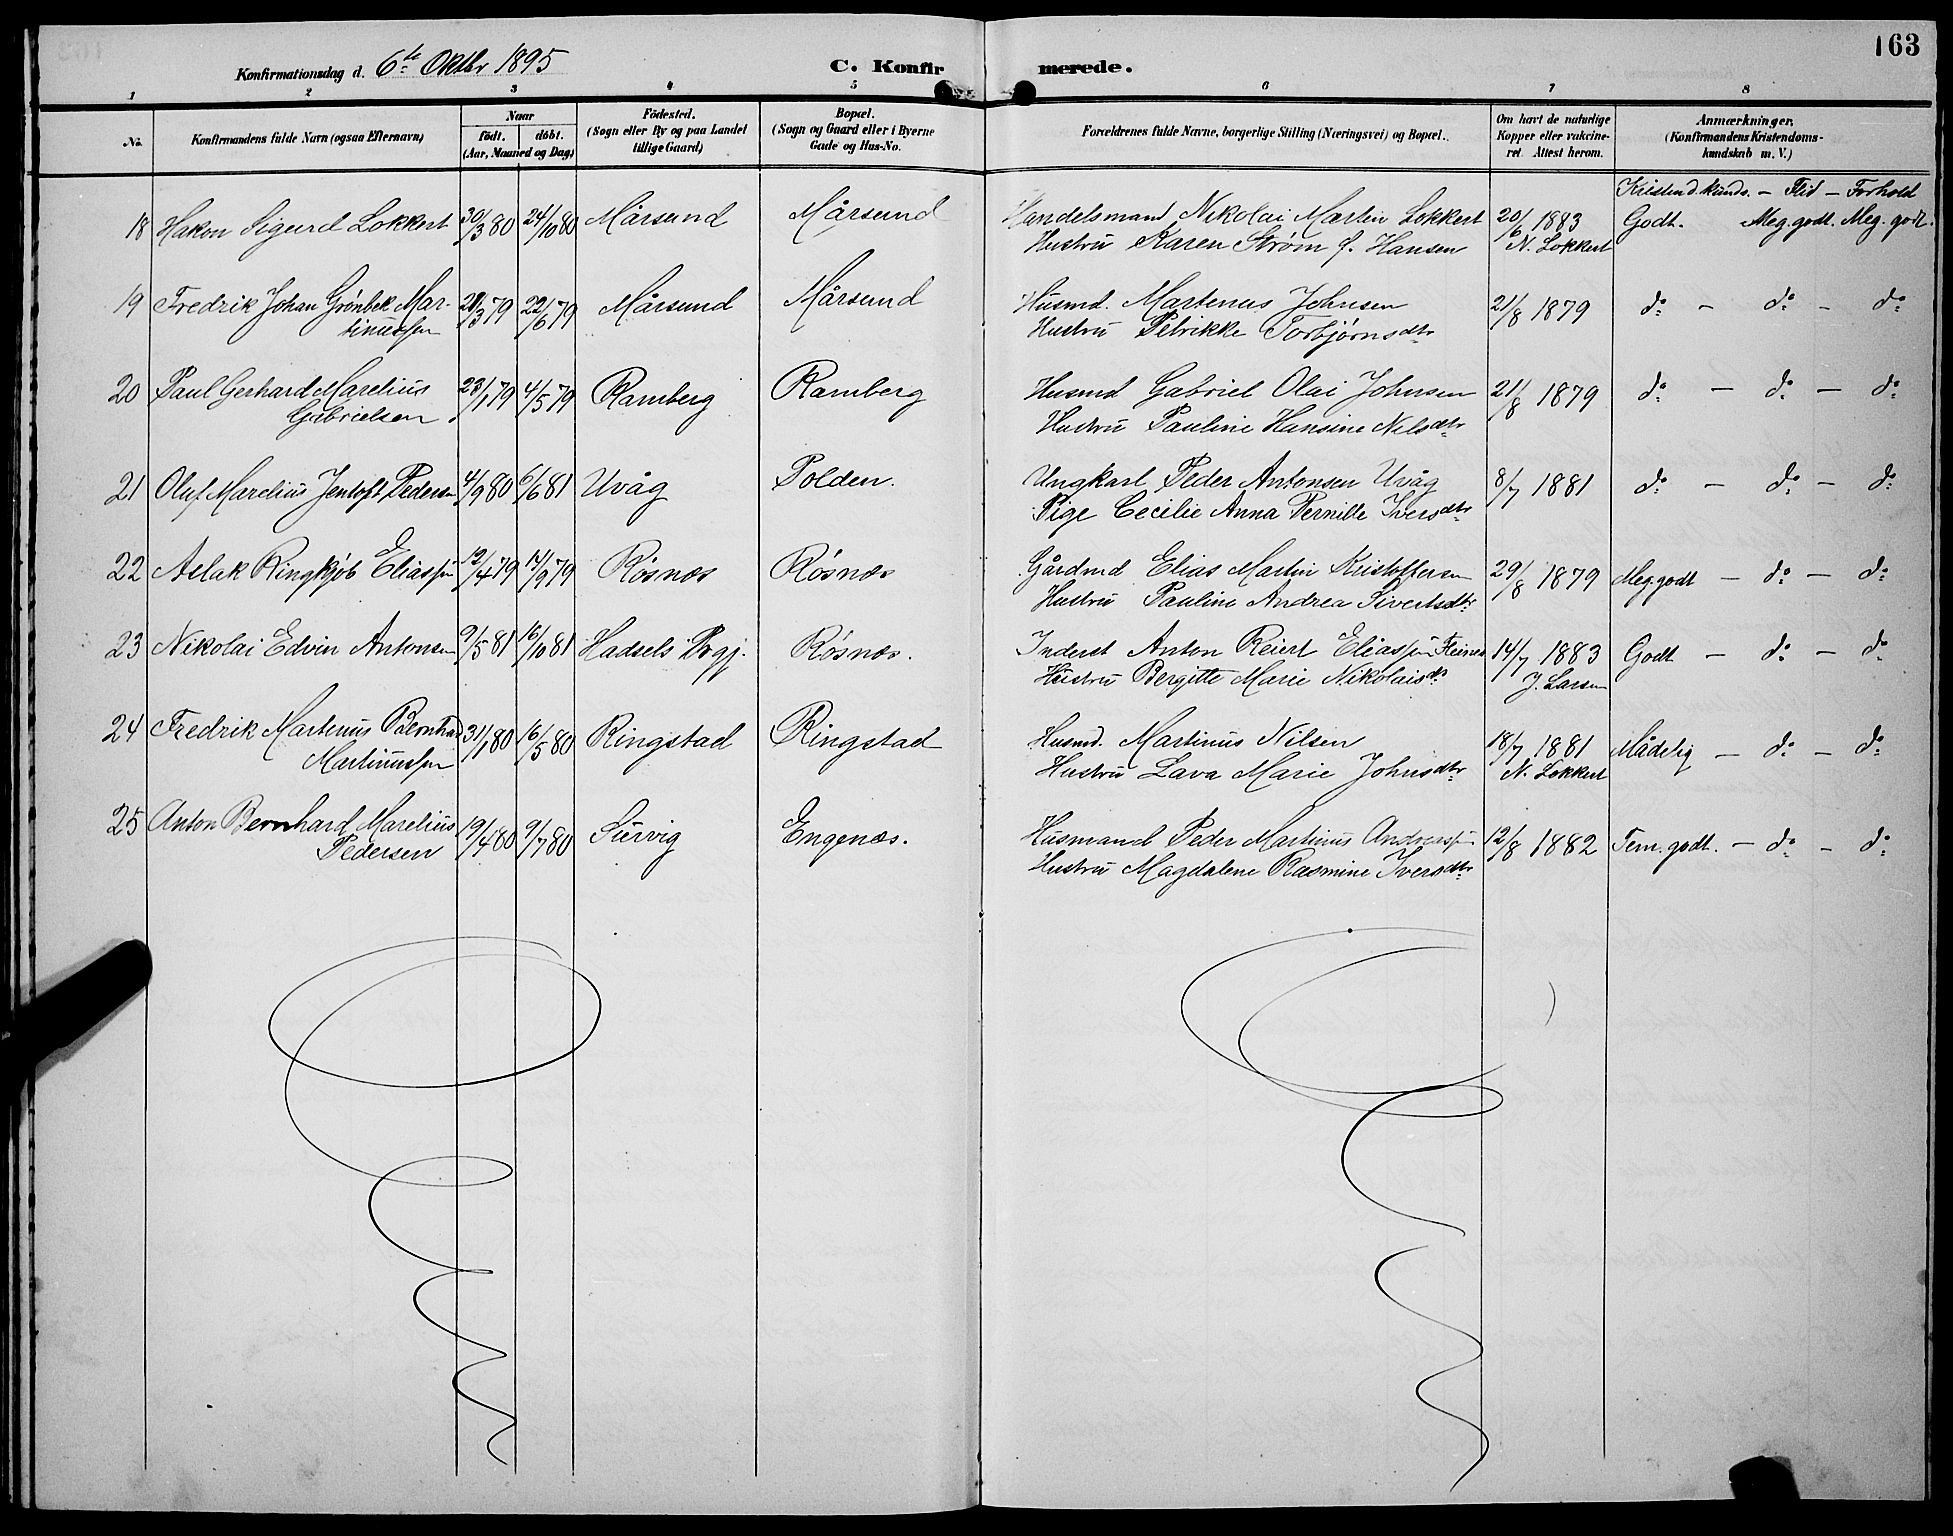 163
Konfirmationsdag d. 6te Oktbr 1895
C. Konfirmerede.
1 2 3 4 5 6 7 8
No. Konfirmandens fulde Navn (ogsaa Efternavn) Naar født. døbt. (Aar, Maaned og Dag) Fødested. (Sogn eller By og paa Landet tillige Gaard) Bopæl. (Sogn og Gaard eller i Byerne Gade og Hus-No. Forældrenes fulde Navne, borgerlige Stilling (Næringsvei) og Bopæl. Om havt de naturlige Kopper eller vakcineret. Attest herom. Anmærkninger. (Konfirmandens Kristendomskundskab m. V.)
Kristend. kunds. - Flid - Forhold
18 Hakon Sigurd Lokkert 30/3 80 24/10 80 Mårsund Mårsund Handelsmand Nikolai Martin Lokkert 20/6 1883 Godt. Meg. godt. Meg. godt.
Hustru Karen Strøm f. Hansen N. Lokkert
19 Fredrik Johan Grønbek Mar- 28/3 79 22/6 79 Mårsund Mårsund Husmd. Martenus Johnsen 21/8 1879 do - do - do
tinussen Hustru Petrikke Torbjørnsdtr
20 Paul Gerhard Marelius 23/1 79 4/5 79 Ramberg Ramberg Husmd Gabriel Olai Johnsen 21/8 1879 do - do - do
Gabrielsen Hustru Pauline Hansine Nilsdtr
21 Oluf Marelius Jentoft Pedersen 4/9 80 6/6 81 Uvåg Polden. Ungkarl Peder Antonsen Uvåg 8/7 1881 do - do - do
Pige Cecilie Anna Pernille Iversdtr
22 Aslak Ringkjøb Eliassen 12/4 79 14/9 79 Røsnæs Røsnæs Gårdmd Elias Martin Kristoffersen 29/8 1879 Meg. godt - do - do
Hustru Pauline Andrea Sivertsdtr
23 Nikolai Edvin Antonsen 9/5 81 16/10 81 Hadsels Prgj. Røsnæs. Inderst Anton Reiert Eliassen Fleines 14/7 1883 Godt - do - do
Hustru Bergitte Marie Nikolaisdtr J. Larsen
24 Fredrik Martenus Bernhard 31/1 80 16/5 80 Ringstad Ringstad Husmd. Martinus Nilsen 18/7 1881 Mådelig - do - do
Martinussen Hustru Lava Marie Johnsdtr N. Lokkert
25 Anton Bernhard Marelius 19/4 80 9/7 80 Survig Engenæs. Husmand Peder Martinus Andreassen 12/8 1882 Tem. godt. - do - do
Pedersen Hustru Magdalene Rasmine Iversdtr